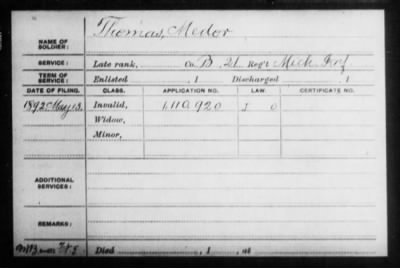 NAME OF SOLDIER: Thomas, Medor
SERVICE: Late rank, Co. B, 21 Reg't Mich Inf
TERM OF SERVICE: Enlisted , 1 Discharged , 1
DATE OF FILING. CLASS. APPLICATION NO. LAW. CERTIFICATE NO.
1892 May 13. Invalid, 1,110,920 J O
Widow,
Minor,
ADDITIONAL SERVICES:
REMARKS:
Died , 1 , at